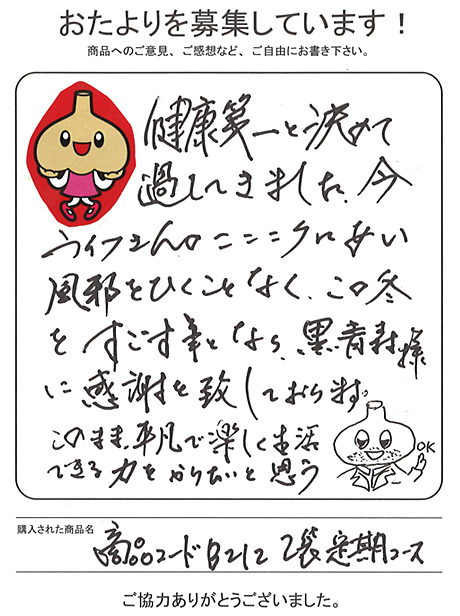 おたよりを募集しています！
商品へのご意見、ご感想など、ご自由にお書き下さい。
健康第一と決めて
過してきました。今
風邪をひくことなく、この冬
をすごす事となら、黒青寿様
に感謝を致しております。
このまま、平凡で楽しく生活
できる力をかりたいと思う
OK
購入された商品名
商品コードB212 2袋定期コース
ご協力ありがとうございました。